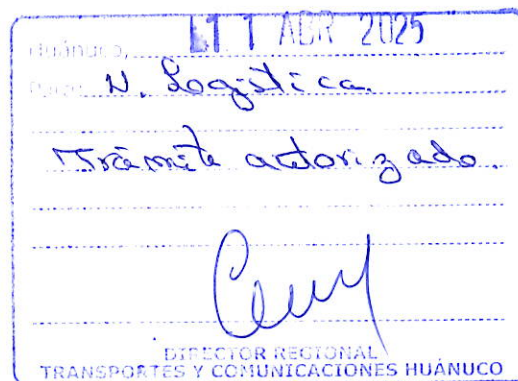 Huánuco, 11 ABR 2025
Pase: U. Logística.
Trámite autorizado.
DIRECTOR REGIONAL
TRANSPORTES Y COMUNICACIONES HUÁNUCO